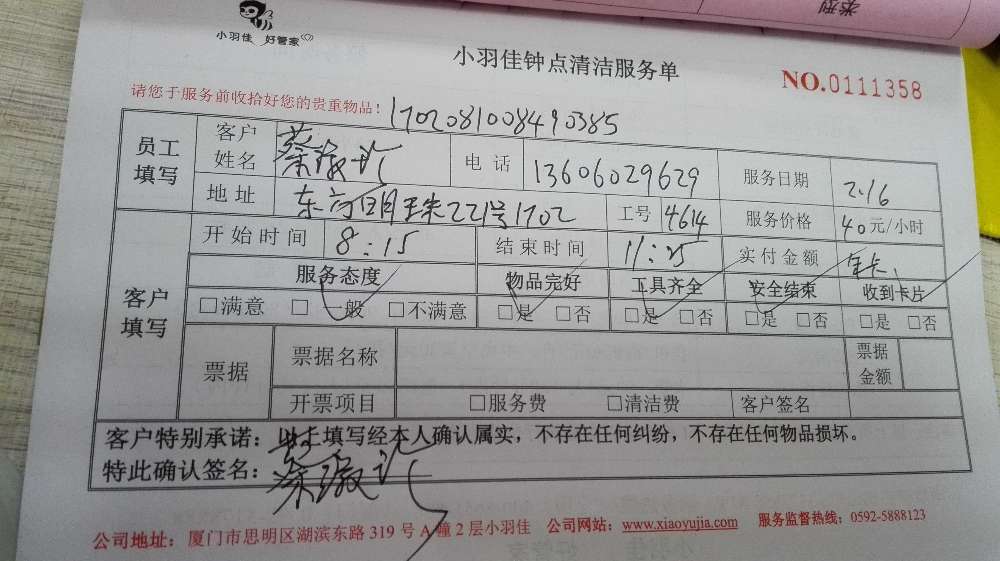 小羽佳 好管家
类型
小羽佳钟点清洁服务单
NO.0111358
请您于服务前收拾好您的贵重物品!
1702081008490385
员工填写
客户姓名 蔡
电话 13606029629
服务日期 2.16
地址 东方明珠221号1702
工号 4614
服务价格 40元/小时
客户填写
开始时间 8:15
结束时间 11:25
实付金额 年卡
服务态度 物品完好 工具齐全 安全结束 收到卡片
□满意 □一般 □不满意 □是 □否 □是 □否 □是 □否 □是 □否
票据
票据名称
票据金额
开票项目 □服务费 □清洁费 客户签名
客户特别承诺：以上填写经本人确认属实，不存在任何纠纷，不存在任何物品损坏。
特此确认签名：蔡
公司地址：厦门市思明区湖滨东路 319 号 A 幢 2 层小羽佳 公司网站：www.xiaoyujia.com 服务监督热线：0592-5888123